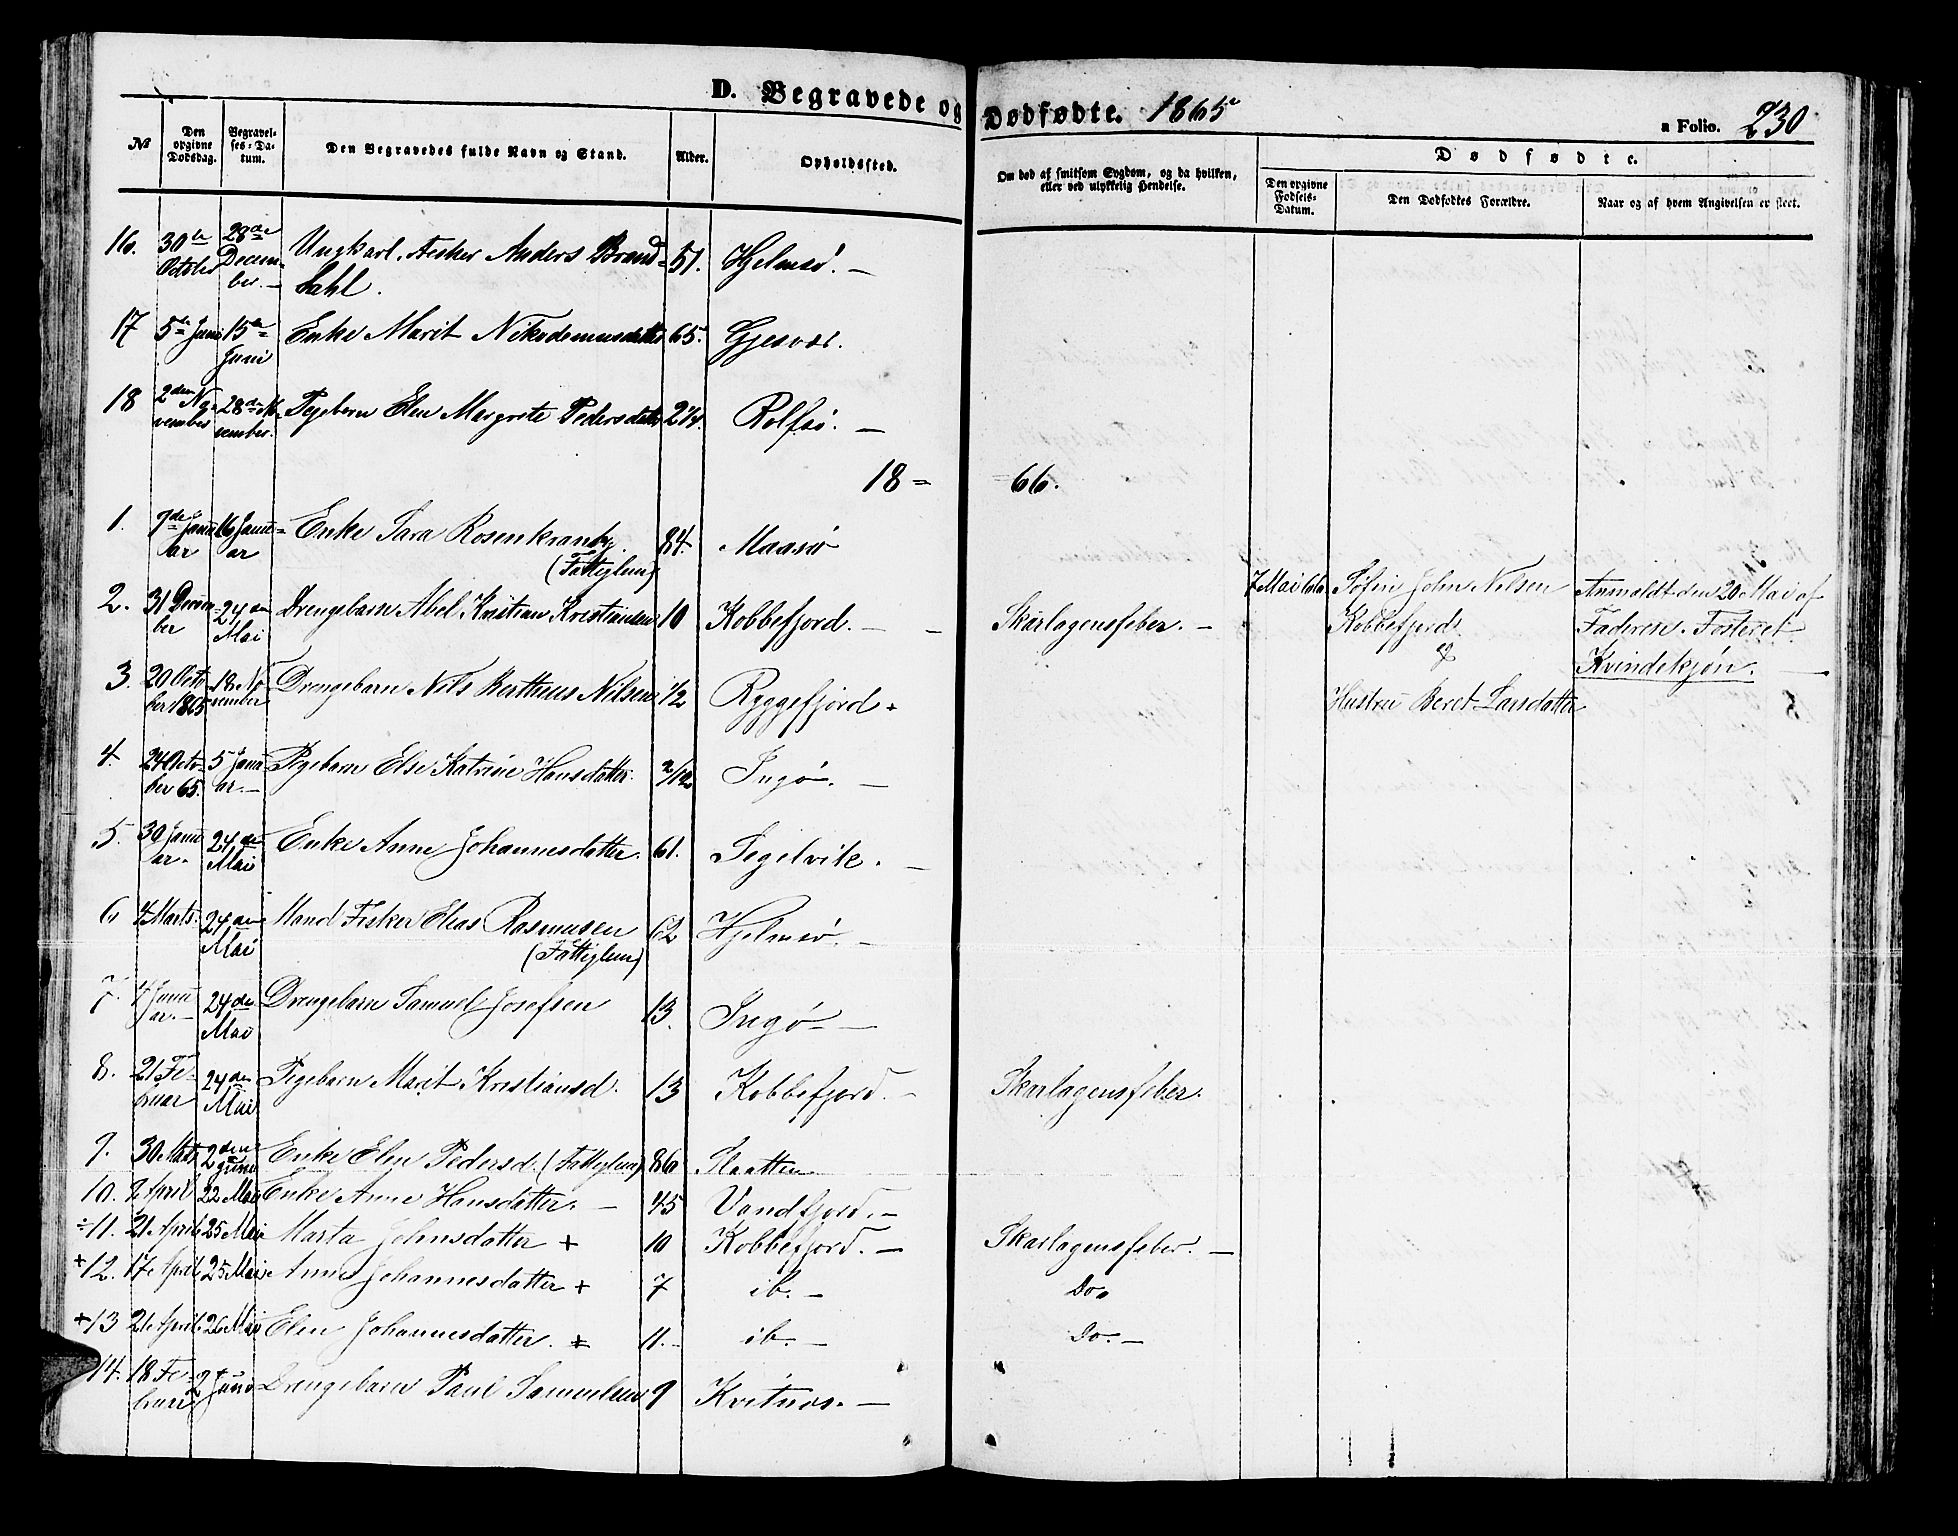 D. Begravede og Dødfødte. 1865
a Folio. 230
№
Den opgivne Dødsdag.
Begravelses-Datum.
Den Begravedes fulde Navn og Stand.
Alder.
Opholdssted.
Om død af smitsom Sygdom, og da hvilken, eller ved ulykkelig Hendelse.
Dødfødte.
Den opgivne Fødsels-Datum.
Den Dødfødtes Forældre.
Naar og af hvem Angivelsen er skeet.
16. 30te October 28de December. Ungkarl, Anders Brand= 51. Hjelmsø. —
dahl.
17 5te Juni 15de Juni Enke Marit Nikodemusdatter 65. Gjesvær.
18 2den November 28de November. Pigebarn Elen Margrete Pedersdatter 2 Rolfsø. —
18 = 66.
1. 7de Januar 16 Januar Enke Sara Rosenkrantz 84. Maasø
(Fattiglem)
2. 31 December 24de Mai Drengebarn Abel Kristian Kristiansen 10 Kobbefjord. — Skarlagensfeber. — 7 Mai 66 John Nilsen Anmeldt den 20 Mai af
Kobbefjord Faderen. Fosteret
& Kvindekjøn. —
3. 20 October 1865 18 November Drengebarn Nils Bertheus Nilsen 1/2 Ryggefjord. Hustru Beret Larsdatter
4. 24 October 65. 5 Januar. — Pigebarn Else Katrine Hansdatter. 2/12 Ingø. —
5. 30 Januar. 24de Mai Enke Anne Johannesdatter. 61. Segelvik. —
6 4 Marts. 24de Mai Mand Fisker Elias Rasmusen 62 Hjelmsø. —
(Fattiglem)
7. 4 Januar. — 24de Mai Drengebarn Samuel Josefsen 13. Ingø —
8. 21 Februar 24de Mai Pigebarn Marit Kristiansd. 13 Kobbefjord. — Skarlagensfeber.
9. 30 Marts 2den Juni Enke Elen Pedersd. (Fattiglem) 86 Slaatten
10. 2 April 22 Mai Enke Anne Hansdatter. — 45 Vandfjord. —
÷11. 21 April 25 Mai Marta Johnsdatter + 10 Kobbefjord. — Skarlagensfeber. —
+12. 17 April 25 Mai Anne Johannesdatter + 7 ib. — Do.
+13 21 April 26 Mai Elen Johannesdatter. + 11. — ib. — Do. —
14. 18 Februar 2 Juni Drengebarn Paul Samuelsen 9 Kvitnæs. —